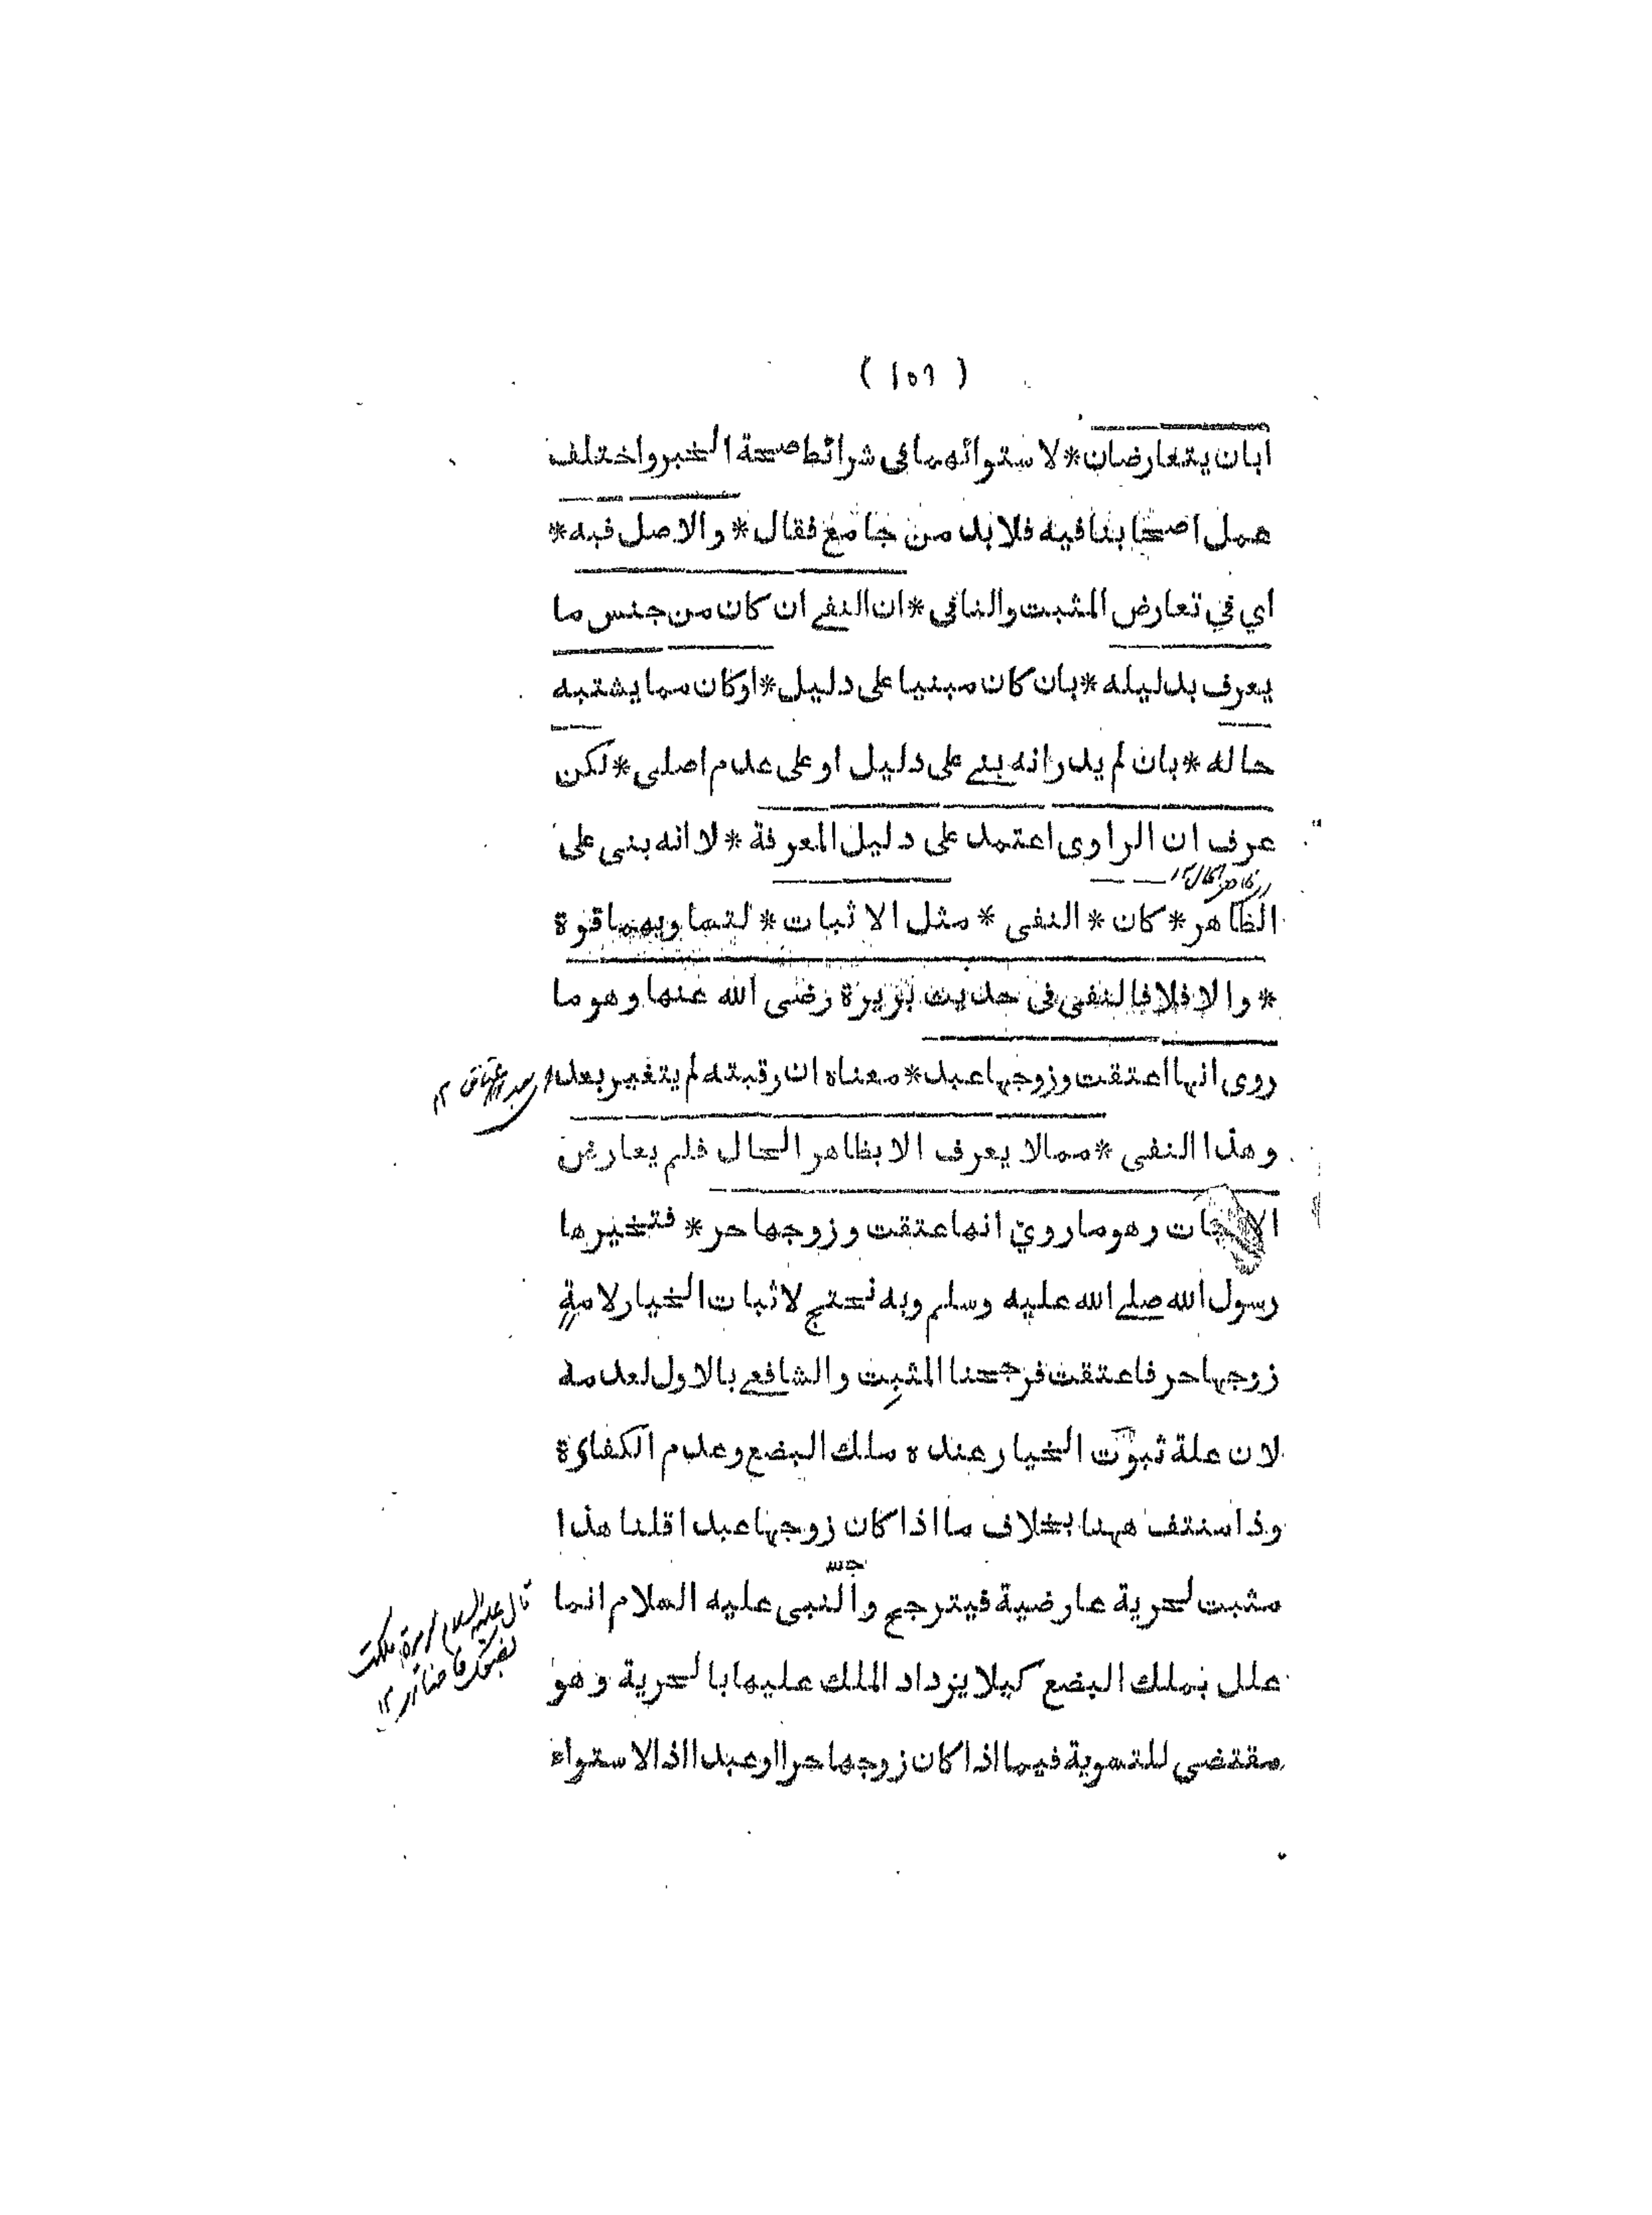 ( ١٥٦ )
ابان يتعارضان * لاستوائهما فى شرائط صحة الخبر واختلف
عمل اصحابنا فيه فلابد من جامع فقال * والاصل فيه *
اي في تعارض المثبت والنافى * ان النفے ان كان من جنس ما
يعرف بدليله * بان كان مبنيا على دليل * اوكان مما يشتبه
حاله * بان لم يدر انه بنے على دليل او على عدم اصلى * لكن
عرف ان الراوى اعتمد على دليل المعرفة * لا انه بنى على
الظاهر * كان * النفى * مثل الاثبات * لتساويهما قوة
* والا فلا فالنفى فى حديث بريرة رضى الله عنها وهو ما
روى انها اعتقت وزوجها عبد * معناه ان رقبته لم يتغير بعد
وهذا النفى * ممالا يعرف الا بظاهر الحال فلم يعارض
الاثبات وهو ماروي انها عتقت وزوجها حر * فتخيرها
رسول الله صلے الله عليه وسلم وبه نحتج لاثبات الخيار لامةٍ
زوجها حر فاعتقت فرجحنا المثبت والشافعے بالاول لعدمه
لان علة ثبوت الخيار عنده ملك البضع وعدم الكفاؤة
وذا منتف ههنا بخلاف ما اذا كان زوجها عبدا قلنا هذا
مثبت لحرية عارضية فيترجح والنبى عليه السلام انما
علل بملك البضع كيلا يزداد الملك عليها بالحرية وهو
مقتضى للتسوية فيما اذا كان زوجها حرا اوعبدا اذ الاستواء
قال عليه السلام لبريرة ملكت
بضعك فاختارى ١٢